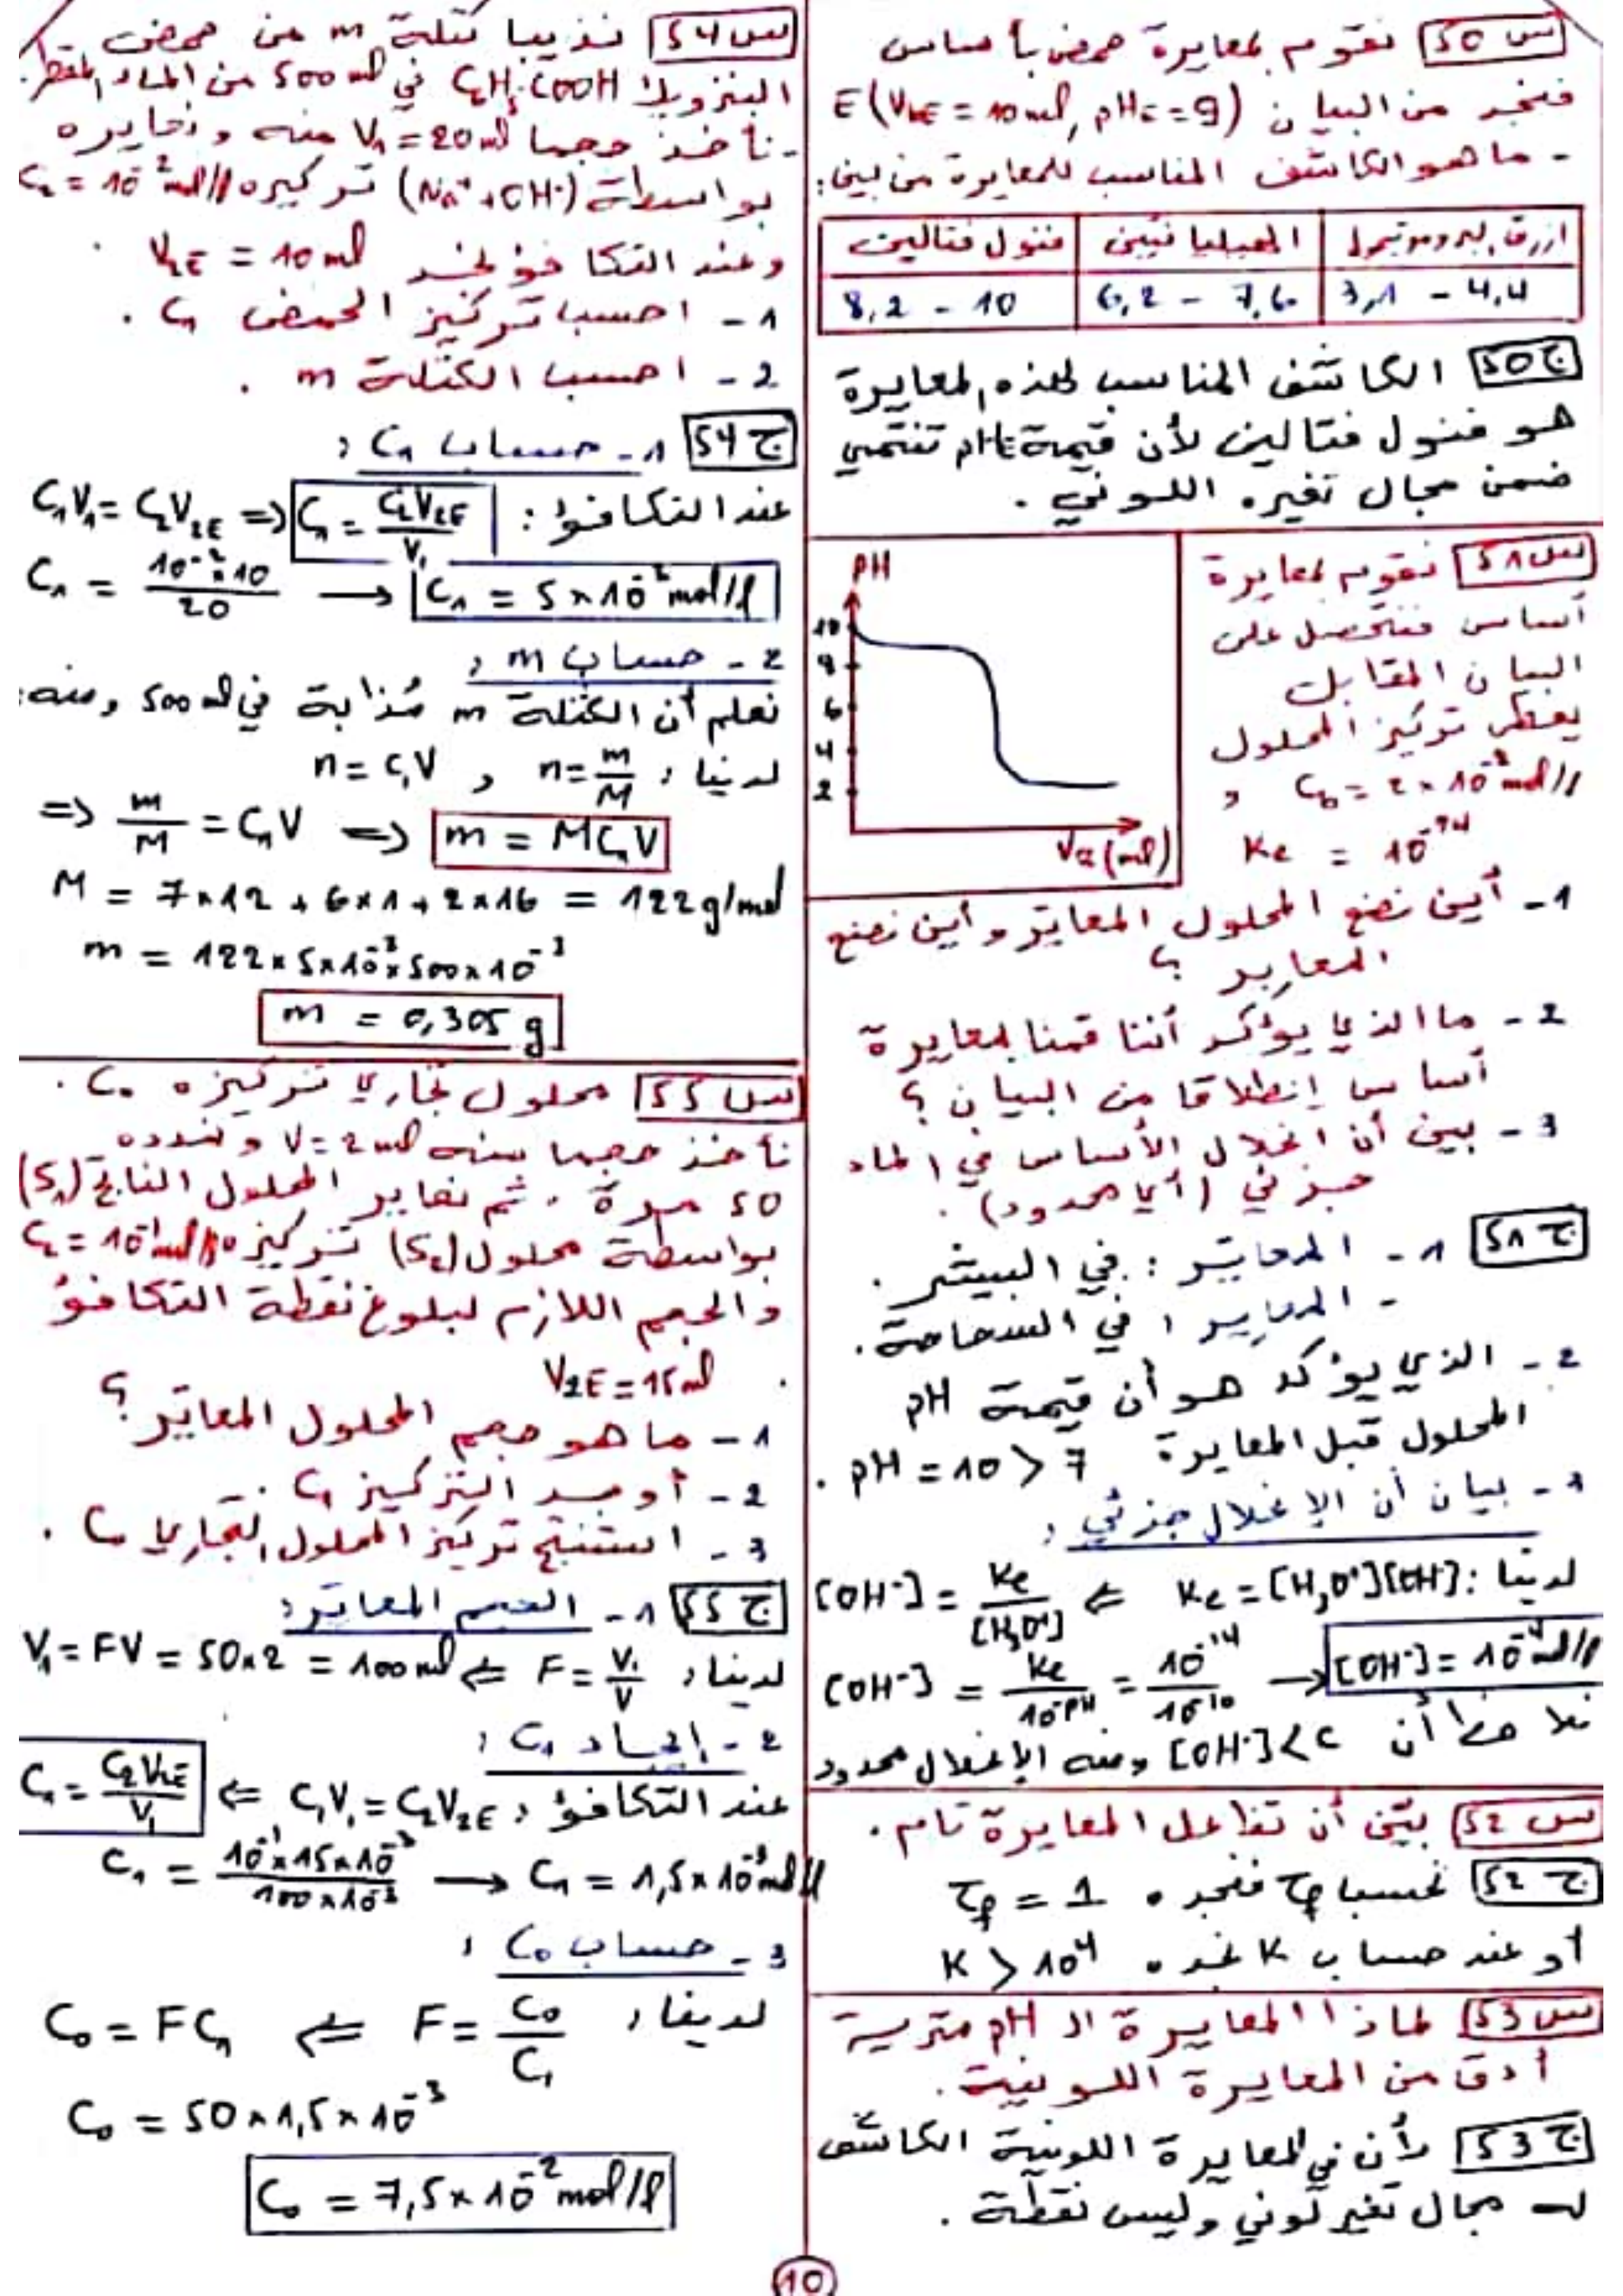 س50 نقوم بمعايرة حمض بأساس
فنجد من البيان E(VbE = 10 ml, pHE = 9)
- ما هو الكاشف المناسب للمعايرة من بين:
ازرق البروموتيمول | الهيليانتين | فنول فتالين
3,1 - 4,4 | 6,2 - 7,6 | 8,2 - 10
ج50 الكاشف المناسب لهذه المعايرة
هو فنول فتالين لأن قيمة pHE تنتمي
ضمن مجال تغيره اللوني .
س51 نقوم بمعايرة
أساس فنتحصل على
البيان المقابل
يعطى تركيز المحلول
Cb = 2 × 10⁻² mol/l و
Ke = 10⁻¹⁴
pH
10
8
6
4
2
Va (ml)
1 - أين نضع المحلول المعايَر وأين نضع
المعايِر ؟
2 - ما الذي يؤكد أننا قمنا بمعايرة
أساس إنطلاقا من البيان ؟
3 - بين أن انحلال الأساس في الماء
جزئي (أي محدود) .
ج51 1 - المعايَر : في البيشر .
- المعايِر : في السحاحة .
2 - الذي يؤكد هو أن قيمة pH
المحلول قبل المعايرة pH = 10 > 7 .
3 - بيان أن الإنحلال جزئي :
لدينا : Ke = [H₃O⁺][OH⁻] ⇐ [OH⁻] = Ke/[H₃O⁺]
[OH⁻] = Ke/10⁻pH = 10⁻¹⁴/10⁻¹⁰ → [OH⁻] = 10⁻⁴ mol/l
نلاحظ أن [OH⁻] < C ومنه الإنحلال محدود
س52 بيّن أن تفاعل المعايرة تام .
ج52 نحسب τf فنجده τf = 1
أو عند حساب K نجده K > 10⁴
س53 لماذا المعايرة الـ pH مترية
أدق من المعايرة اللونية .
ج53 لأن في المعايرة اللونية الكاشف
له مجال تغير لوني وليس نقطة .
س54 نذيب كتلة m من حمض
البنزويك C₆H₅COOH في 500 ml من الماء المقطر.
- نأخذ حجما V₁ = 20 ml منه ونعايره
بواسطة (Na⁺ + OH⁻) تركيزه C₂ = 10⁻² mol/l
وعند التكافؤ نجد V₂E = 10 ml .
1 - احسب تركيز الحمض C₁ .
2 - احسب الكتلة m .
ج54 1 - حساب C₁ :
عند التكافؤ : C₁V₁ = C₂V₂E ⇒ C₁ = C₂V₂E/V₁
C₁ = 10⁻² × 10/20 → C₁ = 5 × 10⁻² mol/l
2 - حساب m :
نعلم أن الكتلة m مُذابة في 500 ml ومنه:
لدينا : n = m/M و n = C₁V
⇒ m/M = C₁V ⇒ m = MC₁V
M = 7×12 + 6×1 + 2×16 = 122 g/mol
m = 122 × 5×10⁻³ × 500×10⁻³
m = 0,305 g
س55 محلول تجاري تركيزه C₀ .
نأخذ حجما منه V = 2 ml ونمدده
50 مرة . ثم نعاير المحلول الناتج (S₁)
بواسطة محلول (S₂) تركيزه C₂ = 10⁻¹ mol/l
والحجم اللازم لبلوغ نقطة التكافؤ
V₂E = 15 ml .
1 - ما هو حجم المحلول المعايَر ؟
2 - أوجد التركيز C₁ .
3 - استنتج تركيز المحلول التجاري C₀ .
ج55 1 - الحجم المعايَر :
لدينا : F = V₁/V ⇐ V₁ = FV = 50×2 = 100 ml
2 - إيجاد C₁ :
عند التكافؤ : C₁V₁ = C₂V₂E ⇐ C₁ = C₂V₂E/V₁
C₁ = 10⁻¹×15×10⁻³/100×10⁻³ → C₁ = 1,5×10⁻³ mol/l
3 - حساب C₀ :
لدينا : F = C₀/C₁ ⇐ C₀ = FC₁
C₀ = 50 × 1,5 × 10⁻³
C₀ = 7,5 × 10⁻² mol/l
10